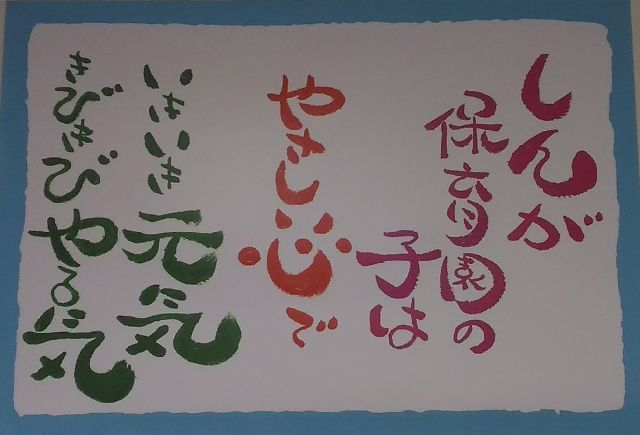 しんが
保育園の
子は
やさしい心で
いきいき元気
きびきびやる気